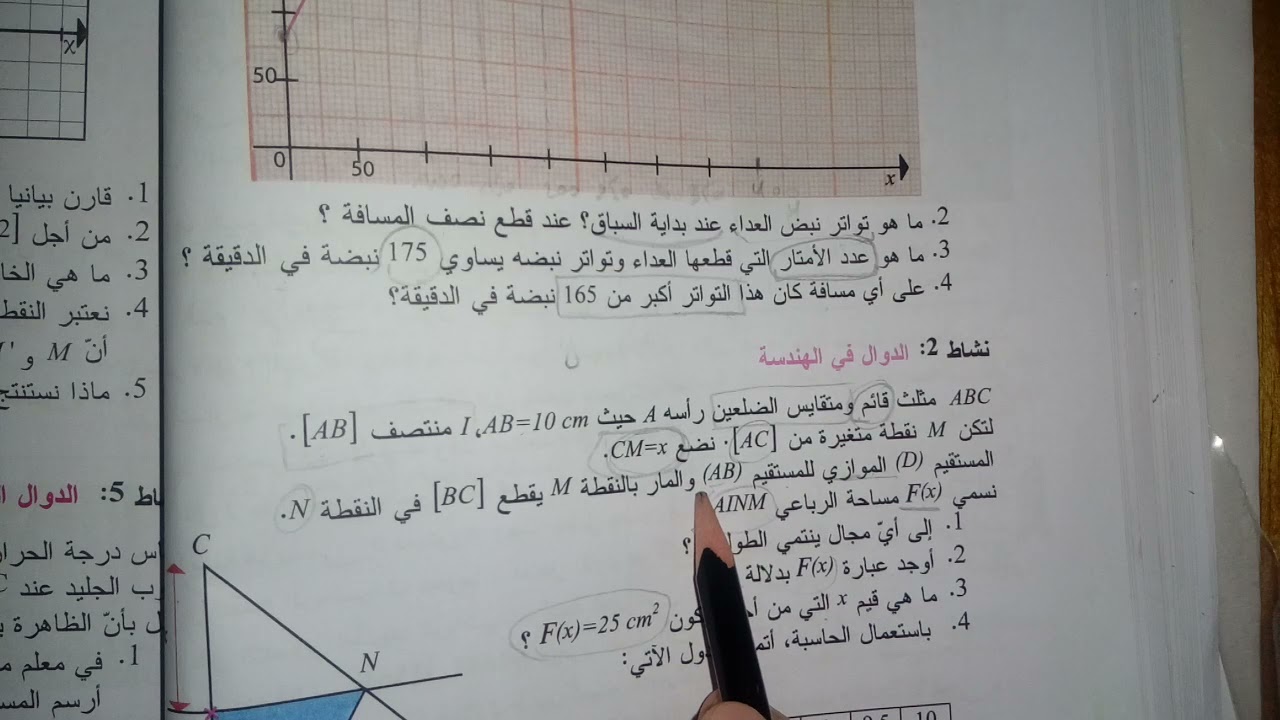 50
0
50
x
2. ما هو تواتر نبض العداء عند بداية السباق؟ عند قطع نصف المسافة ؟
3. ما هو عدد الأمتار التي قطعها العداء وتواتر نبضه يساوي 175 نبضة في الدقيقة ؟
4. على أي مسافة كان هذا التواتر أكبر من 165 نبضة في الدقيقة؟
نشاط 2: الدوال في الهندسة
ABC مثلث قائم ومتقايس الضلعين رأسه A حيث AB=10 cm، I منتصف [AB].
لتكن M نقطة متغيرة من [AC]. نضع CM=x.
المستقيم (D) الموازي للمستقيم (AB) والمار بالنقطة M يقطع [BC] في النقطة N.
نسمي F(x) مساحة الرباعي AINM
1. إلى أيّ مجال ينتمي ؟
2. أوجد عبارة F(x) بدلالة
3. ما هي قيم x التي من F(x)=25 cm² ؟
4. باستعمال الحاسبة، الآتي:
C
N
9.5 10
x
1. قارن بيانيا
2. من أجل
3. ما هي
4. نعتبر
أنّ M و
5. ماذا نستنتج
5: الدوال
درجة
الجليد عند
بأنّ الظاهرة
1. في معلم
أرسم